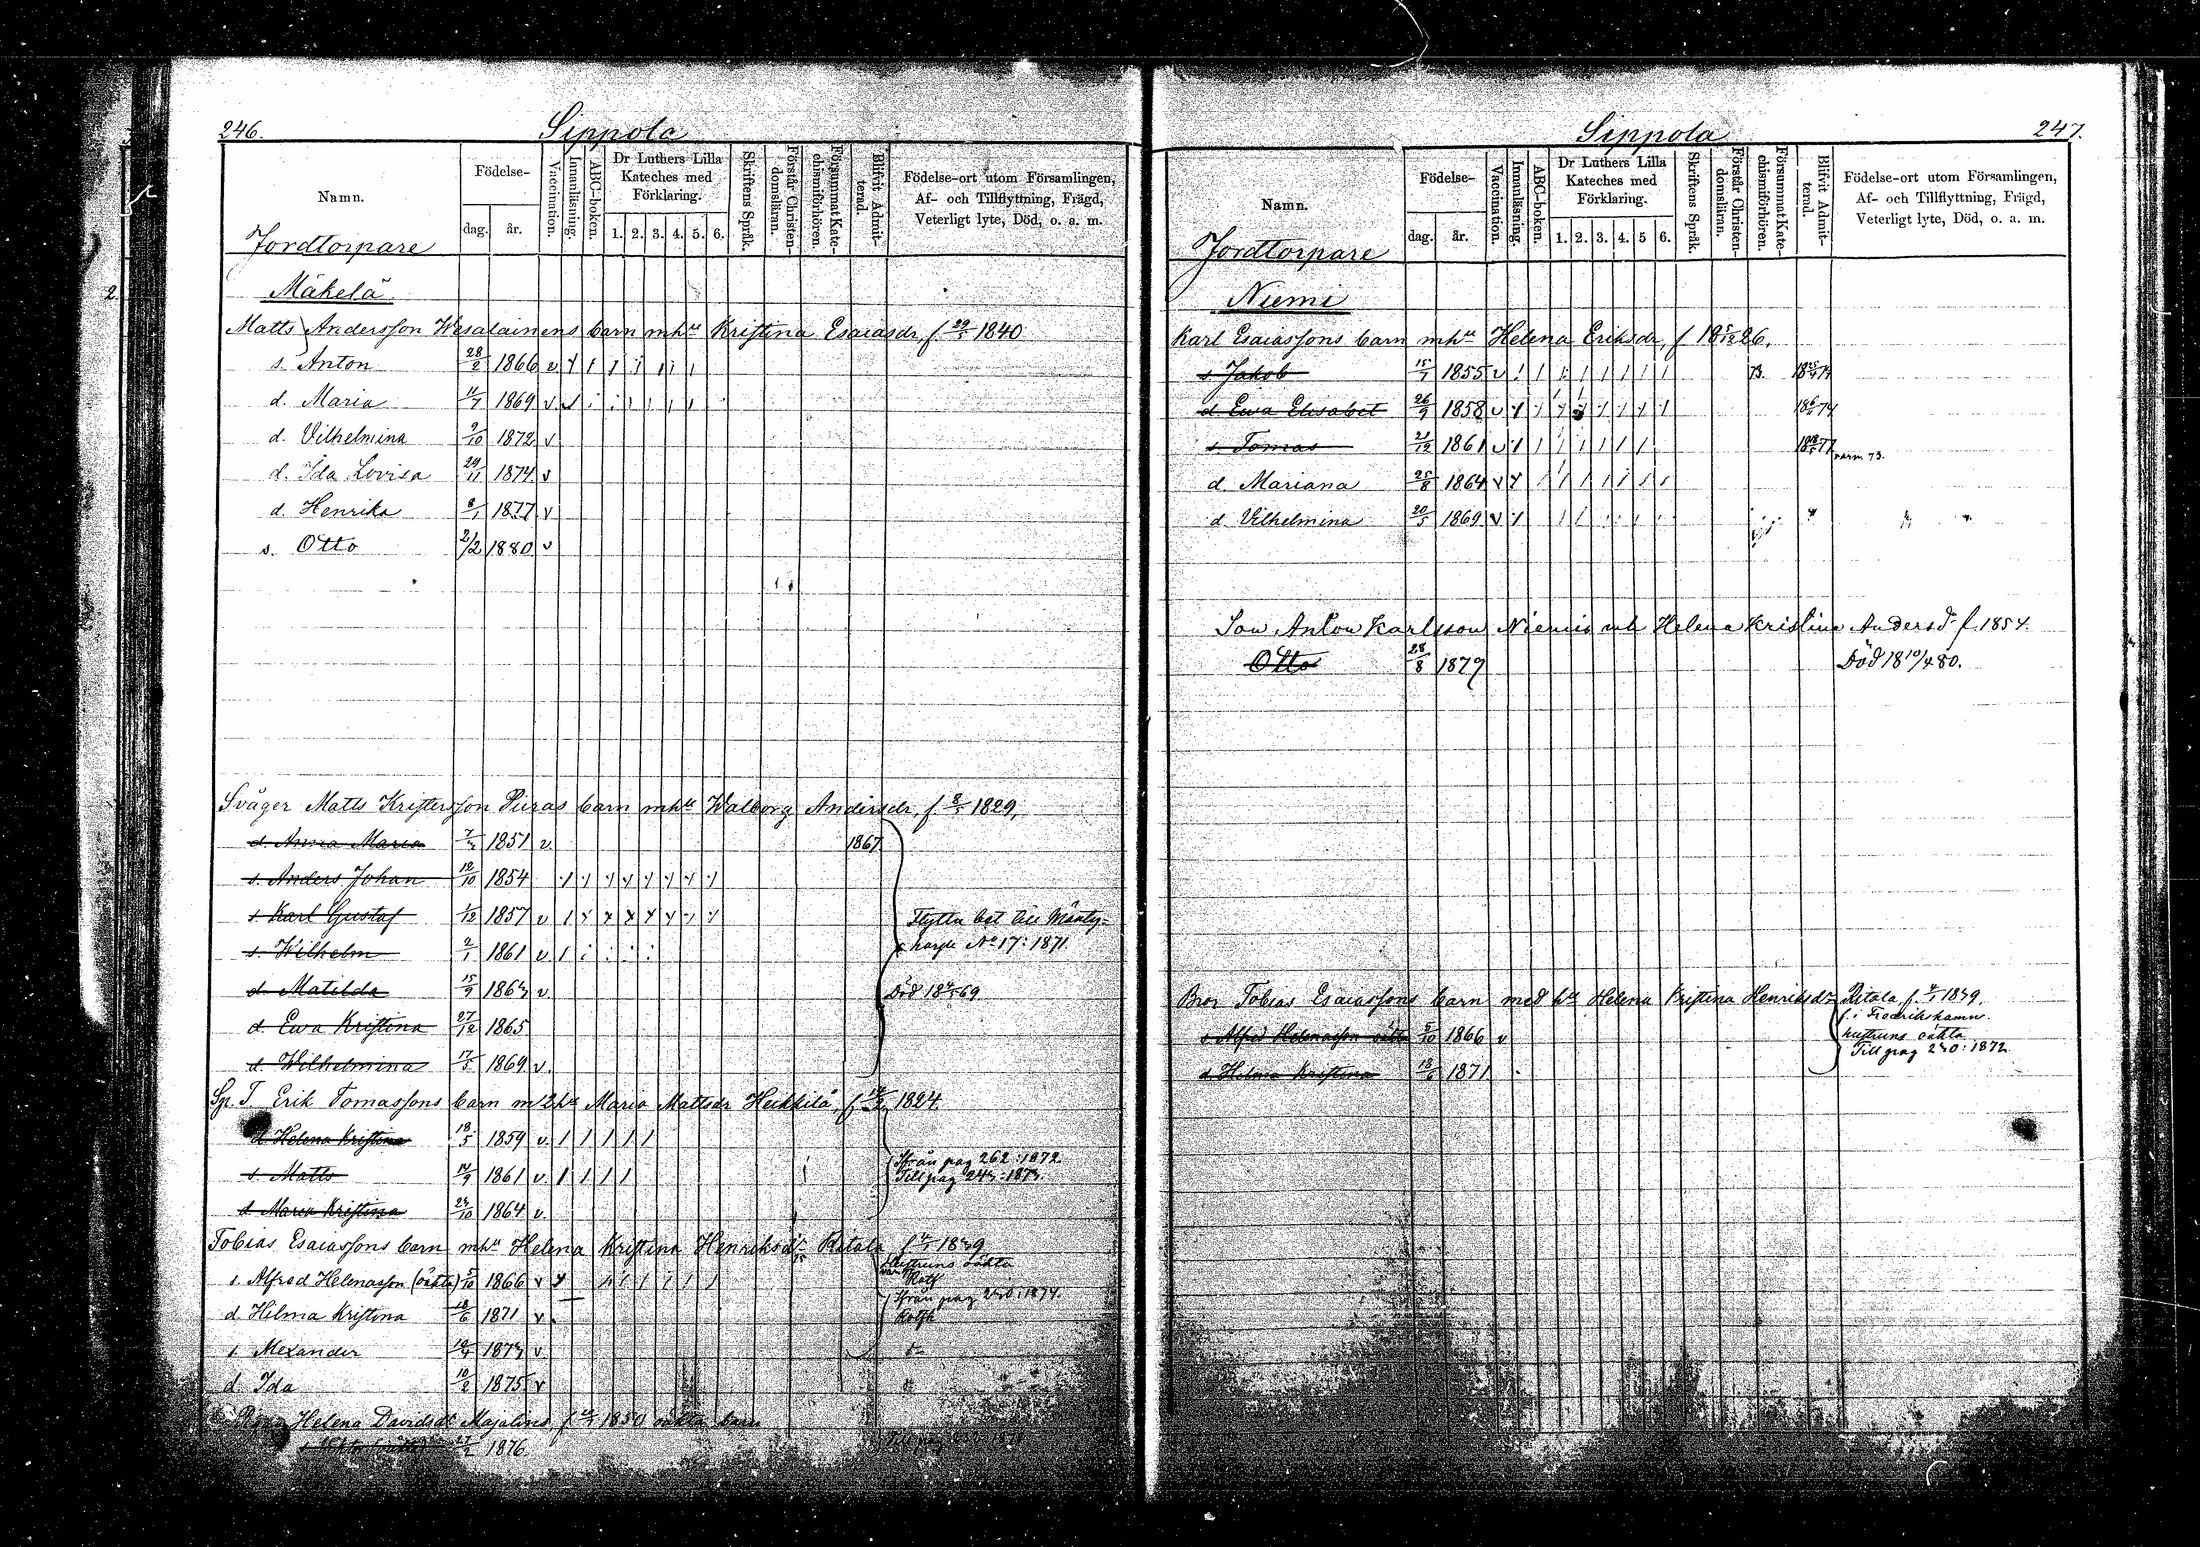 246. Sippola
Namn.
Födelse-
dag. år.
Vaccination.
Innanläsning.
ABC-boken.
Dr Luthers Lilla Kateches med Förklaring.
1. 2. 3. 4. 5. 6.
Skriftens Språk.
Förstår Christendomsläran.
Försummat Katechismiförhören.
Blifvit Admitterad.
Födelse-ort utom Församlingen,
Af- och Tillflyttning, Frägd,
Veterligt lyte, Död, o. a. m.
Jordtorpare
Mäkelä
Matts Andersson Wesalainens barn mhu Kristina Esaiasdr, f. 29/5 1840
s. Anton 28/2 1866 v
d. Maria 11/7 1869 v
d. Vilhelmina 9/10 1872 v
d. Ida Lovisa 29/11 1874 v
d. Henrika 8/1 1877 v
s. Otto 2/2 1880 v
Sväger Matts Kristersson Piiras barn mhu Walborg Andersdr, f. 8/5 1829,
d. Anna Maria 1851 v. 1867
s. Anders Johan 12/10 1854
s. Karl Gustaf 1/12 1857 v
Flytta bet till Mänty-
harju No 17: 1871
s. Wilhelm 2/1 1861 v
d. Matilda 15/9 1863 v. Död 69
d. Ewa Kristina 27/12 1865
d. Wilhelmina 17/5 1869 v.
Erik Tomassons barn m 2 hu Maria Mattsdr Heikkilä, f. 1824
d Helena Kristina 18/5 1859 v.
s. Matts 1861 v.
Ifrån pag 262: 1872
Till pag 243: 1873.
d Maria Kristina 23/10 1864 v.
Tobias Esaiassons barn mhu Helena Kristina Henriksdr Ritala f 1839
s. Alfred Helenasson (oäkta) 5/10 1866 v
hustruns oäkta
d. Hilma Kristina 18/6 1871 v
Ifrån pag 230: 1874.
s. Alexander 1873 v
d. Ida 10/2 1875 v
Pigan Helena Davidsdr Majalins f 1850 oäkta barn
27/2 1876
Sippola 247.
Namn.
Födelse-
dag. år.
Vaccination.
Innanläsning.
ABC-boken.
Dr Luthers Lilla Kateches med Förklaring.
1. 2. 3. 4. 5 6.
Skriftens Språk.
Förstår Christendomsläran.
Försummat Katechismiförhören.
Blifvit Admitterad.
Födelse-ort utom Församlingen,
Af- och Tillflyttning, Frägd,
Veterligt lyte, Död, o. a. m.
Jordtorpare
Niemi
Karl Esaiassons barn mhu Helena Eriksdr, f 18 5/12 26.
s Jakob 15/7 1855 v 73.
d Ewa Elisabet 26/9 1858 v
s Tomas 21/12 1861 v
d. Mariana 25/8 1864 v
d. Vilhelmina 20/5 1869 v
Son Anton Karlsson Niemis mh Helena Kristina Andersdr f. 1854.
Otto 28/8 1879 Död 18 10/4 80.
Bror Tobias Esaiassons barn med hu Helena Kristina Henriksdr Ritala, f. 1839.
s Alfred Helenasson oäkta 5/10 1866 v
f. i Fredrikshamn.
hustruns oäkta
Till pag 230: 1872
d. Hilma Kristina 18/6 1871